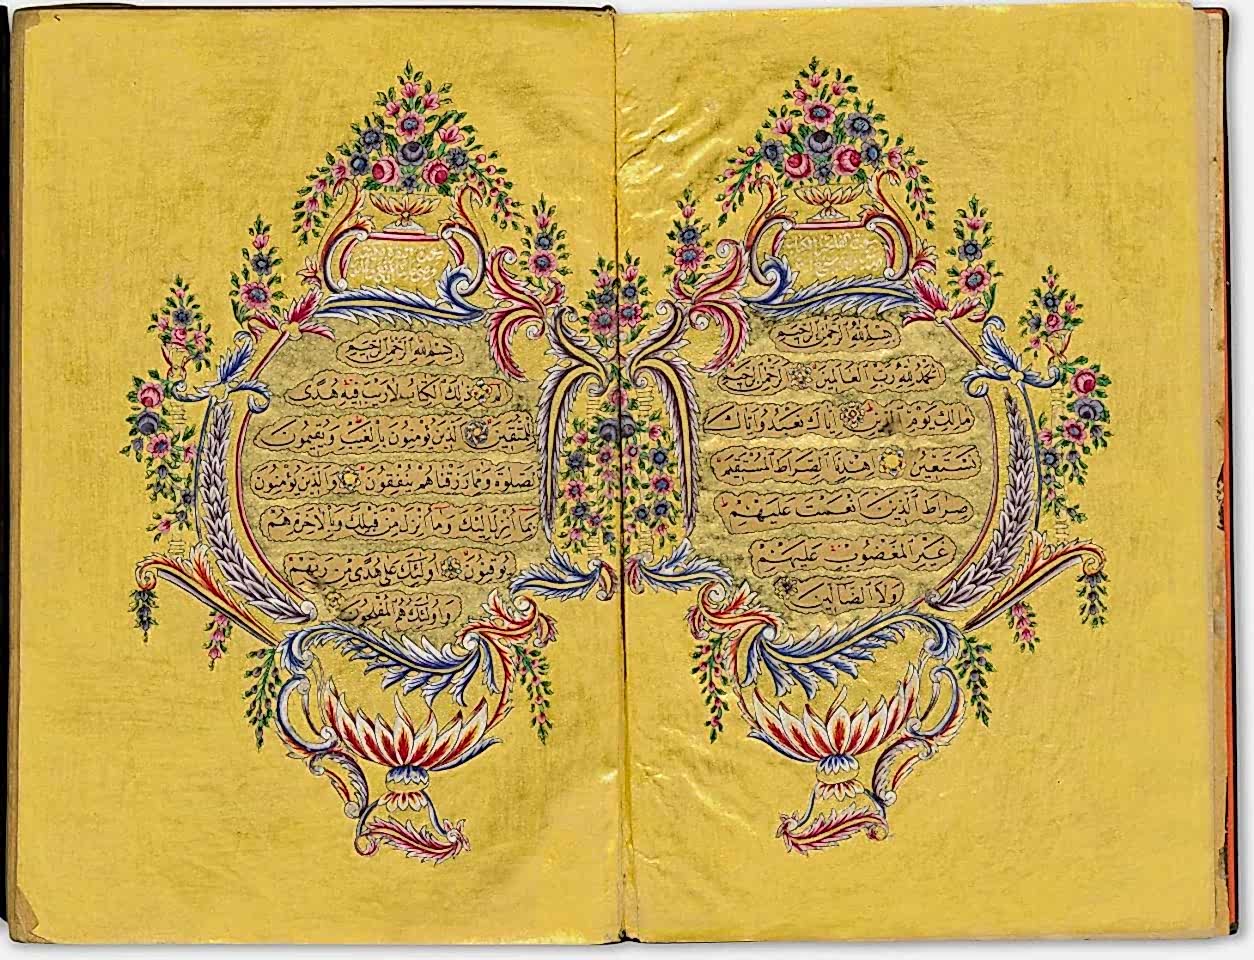 بسم الله الرحمن الرحيم
الحمد لله رب العالمين الرحمن الرحيم
مالك يوم الدين اياك نعبد واياك
نستعين اهدنا الصراط المستقيم
صراط الذين انعمت عليهم
غير المغضوب عليهم
ولا الضالين
بسم الله الرحمن الرحيم
الم ذلك الكتاب لا ريب فيه هدى
للمتقين الذين يؤمنون بالغيب ويقيمون
الصلوة ومما رزقناهم ينفقون والذين يؤمنون
بما انزل اليك وما انزل من قبلك وبالاخرة هم
يوقنون اولئك على هدى من ربهم
واولئك هم المفلحون